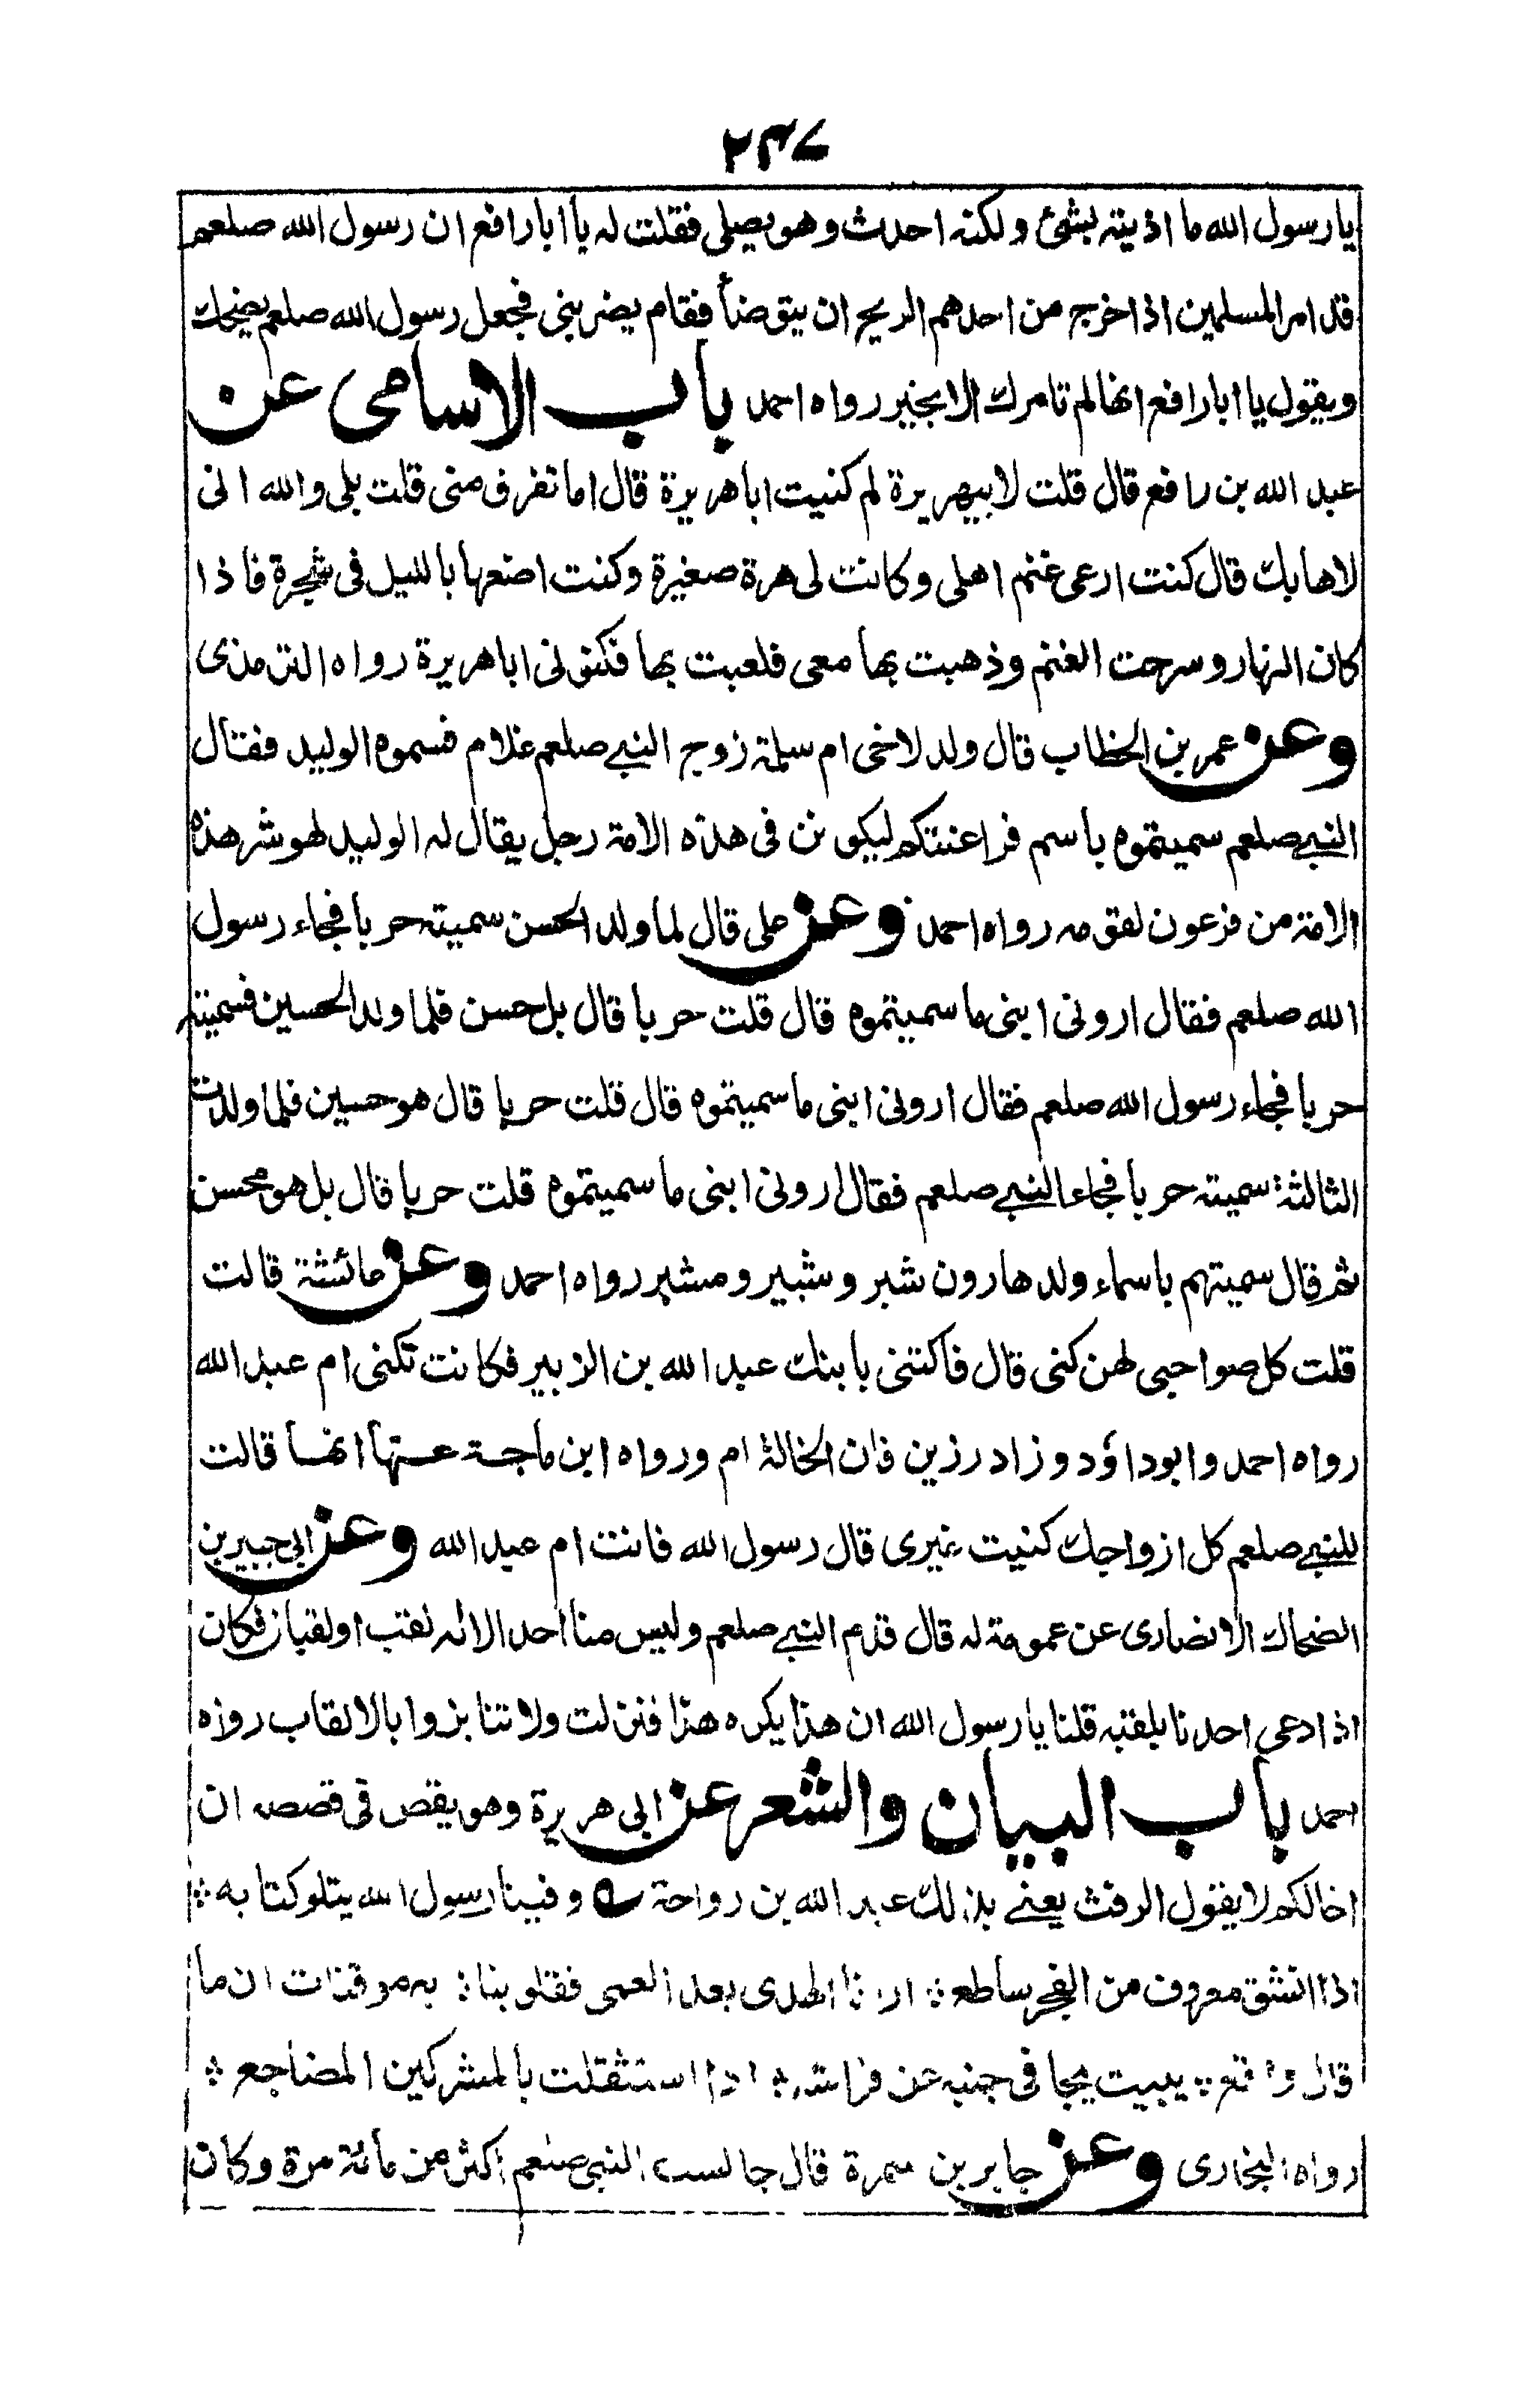 ٢٣٧
يا رسول الله ما اذيته بشئ ولكنه احدث وهو يصلى فقلت له يا ابا رافع ان رسول الله صلعم
قد امر المسلمين اذا خرج من احدهم الريح ان يتوضأ فقام يضربنى فجعل رسول الله صلعم يضحك
ويقول يا ابا رافع انها لم تامرك الا بخير رواه احمد باب الاسامى عن
عبد الله بن رافع قال قلت لابيهريرة لم كنيت ابا هريرة قال اما تفرق منى قلت بلى والله انى
لاهابك قال كنت ارعى غنم اهلى وكانت لى هرة صغيرة وكنت اضعها بالليل فى شجرة فاذا
كان النهار وسرحت الغنم وذهبت بها معى فلعبت بها فكنونى ابا هريرة رواه الترمذى
وعن عمر بن الخطاب قال ولد لاخى ام سلمة زوج النبى صلعم غلام فسموه الوليد فقال
النبى صلعم سميتموه باسم فراعنتكم ليكونن فى هذه الامة رجل يقال له الوليد لهو شر هذه
الامة من فرعون لقومه رواه احمد وعن على قال لما ولد الحسن سميته حربا فجاء رسول
الله صلعم فقال ارونى ابنى ما سميتموه قال قلت حربا قال بل حسن فلما ولد الحسين فسميته
حربا فجاء رسول الله صلعم فقال ارونى ابنى ما سميتموه قال قلت حربا قال هو حسين فلما ولدت
الثالثة سميته حربا فجاء النبى صلعم فقال ارونى ابنى ما سميتموه قلت حربا قال بل هو محسن
ثم قال سميتهم باسماء ولد هارون شبر وشبير ومشبر رواه احمد وعن عائشة قالت
قلت كل صواحبى لهن كنى قال فاكتنى بابنك عبد الله بن الزبير فكانت تكنى ام عبد الله
رواه احمد وابوداؤد وزاد رزين فان الخالة ام ورواه ابن ماجة عنها انها قالت
للنبى صلعم كل ازواجك كنيت غيرى قال رسول الله فانت ام عبد الله وعن ابى جبير بن
الضحاك الانصارى عن عمومة له قال قدم النبى صلعم وليس منا احد الا له لقب او لقبان فكان
اذا دعى احدنا بلقبه قلنا يا رسول الله ان هذا يكره هذا فنزلت ولا تنابزوا بالالقاب رواه
احمد باب البيان والشعر عن ابى هريرة وهو يقص فى قصصه ان
اخا لكم لا يقول الرفث يعنى بذلك عبد الله بن رواحة وفينا رسول الله يتلو كتابه ؞
اذا انشق معروف من الفجر ساطع ؞ ارنا الهدى بعد العمى فقلوبنا ؞ به موقنات ان ما
قال واقع ؞ يبيت يجافى جنبه عن فراشه ؞ اذا استثقلت بالمشركين المضاجع ؞
رواه البخارى وعن جابر بن سمرة قال جالست النبى صلعم اكثر من مائة مرة وكان